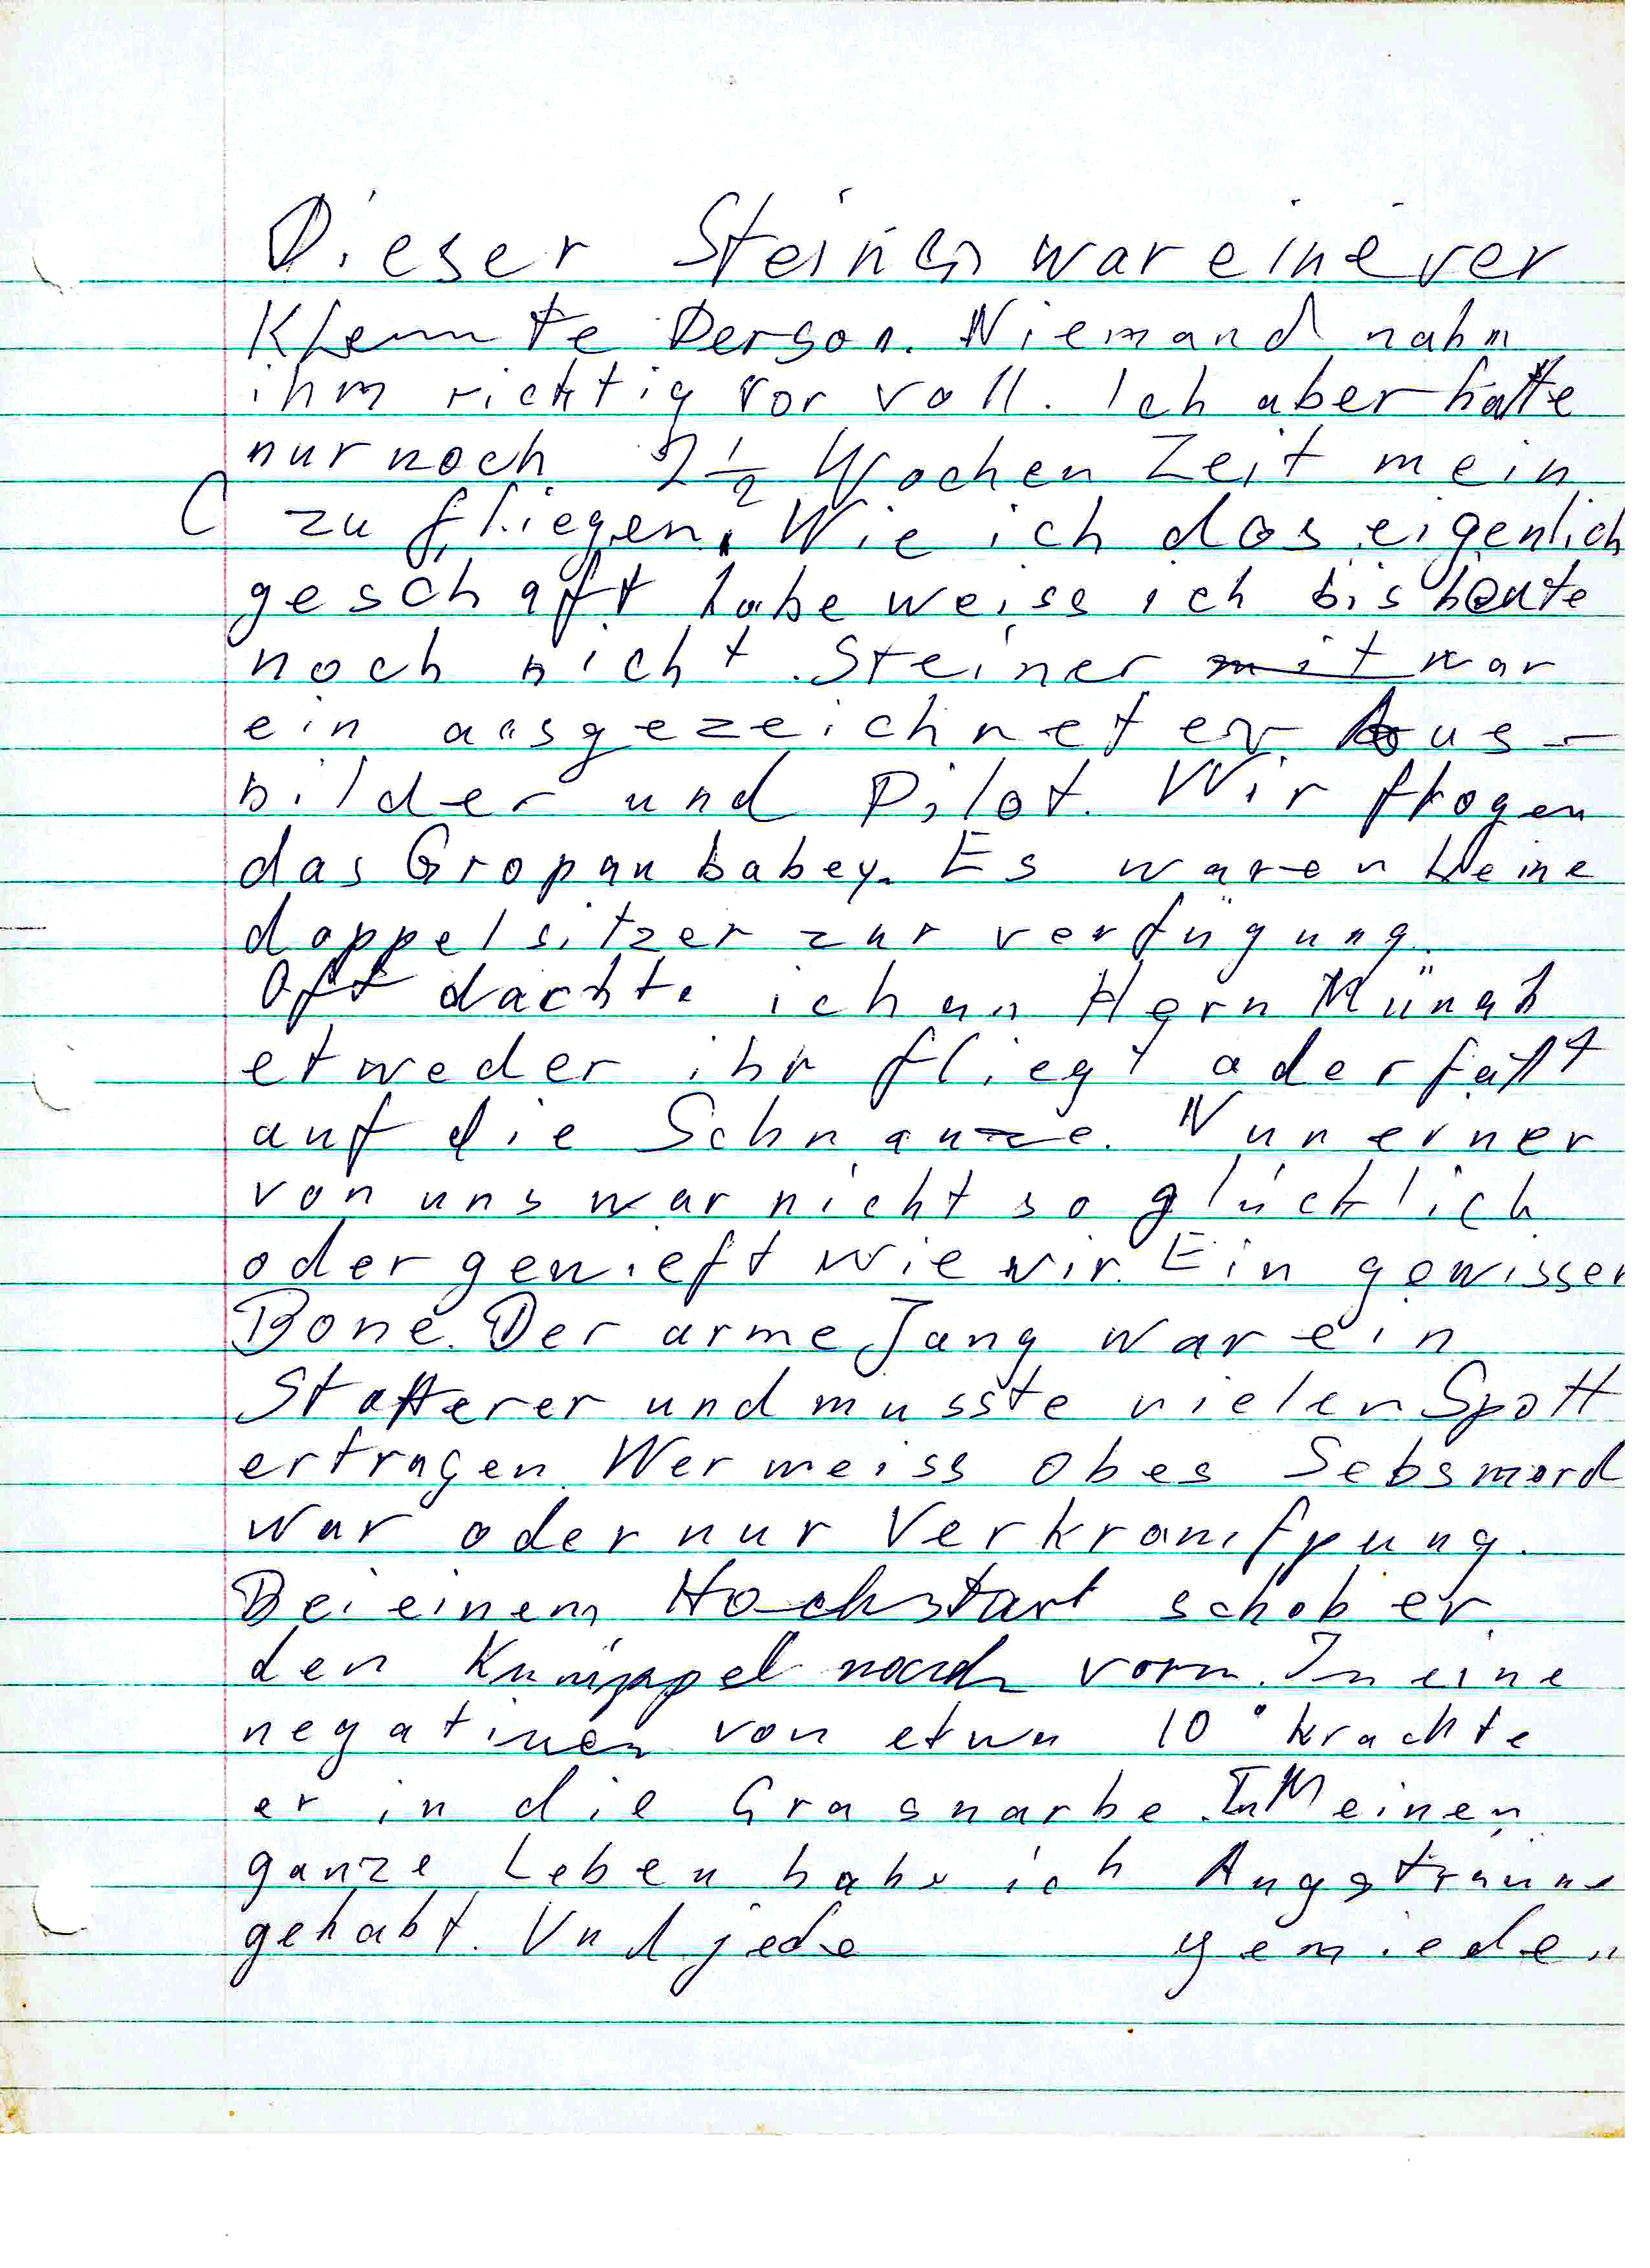 Dieser Steiner war eine ver
klemmte Person. Niemand nahm
ihm richtig vor voll. Ich aber hatte
nur noch 2 1/2 Wochen Zeit mein
C zu fliegen. Wie ich das eigenlich
geschaft habe weiss ich bis heute
noch nicht. Steiner mit war
ein ausgezeichneter Aus-
bilder und Pilot. Wir flogen
das Gropau babey. Es waren keine
doppelsitzer zur verfügung.
Oft dachte ich an Hern
etweder ihr fliegt oder fällt
auf die Schnauze. Nun einer
von uns war nicht so glücklich
oder genieft wie wir. Ein gewisser
Bone. Der arme Jung war ein
Stotterer und musste vielen Spott
ertragen. Wer weiss ob es Sebsmord
war oder nur Verkramfpung.
Bei einem Hochstart schob er
den Knüppel nach vorn. In eine
negativen von etwa 10° krachte
er in die Grasnarbe. In Meinen
ganze Leben habe ich Angsträume
gehabt. Und jede gemieden